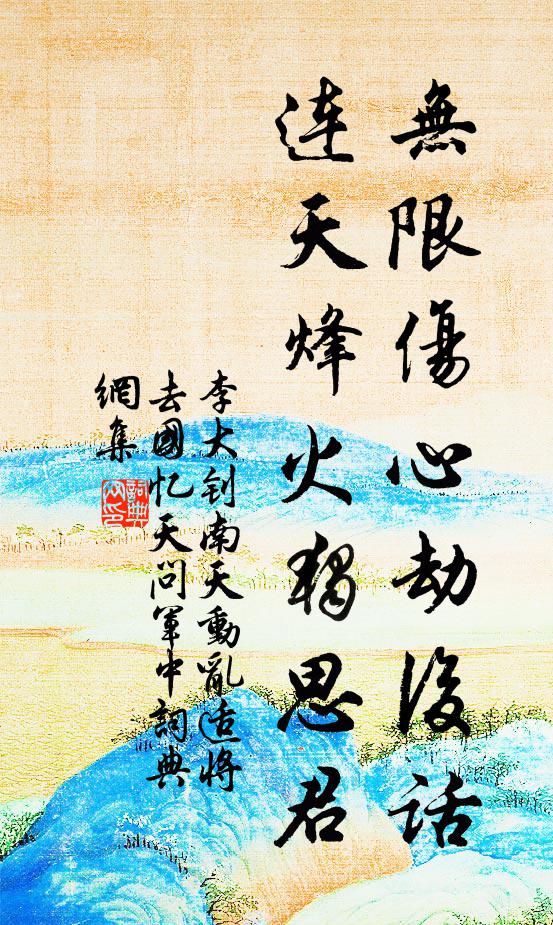 無限傷心劫後話
連天烽火獨思君
李大钊南天動亂适將
去國忆天问军中詞典
網集
詞典